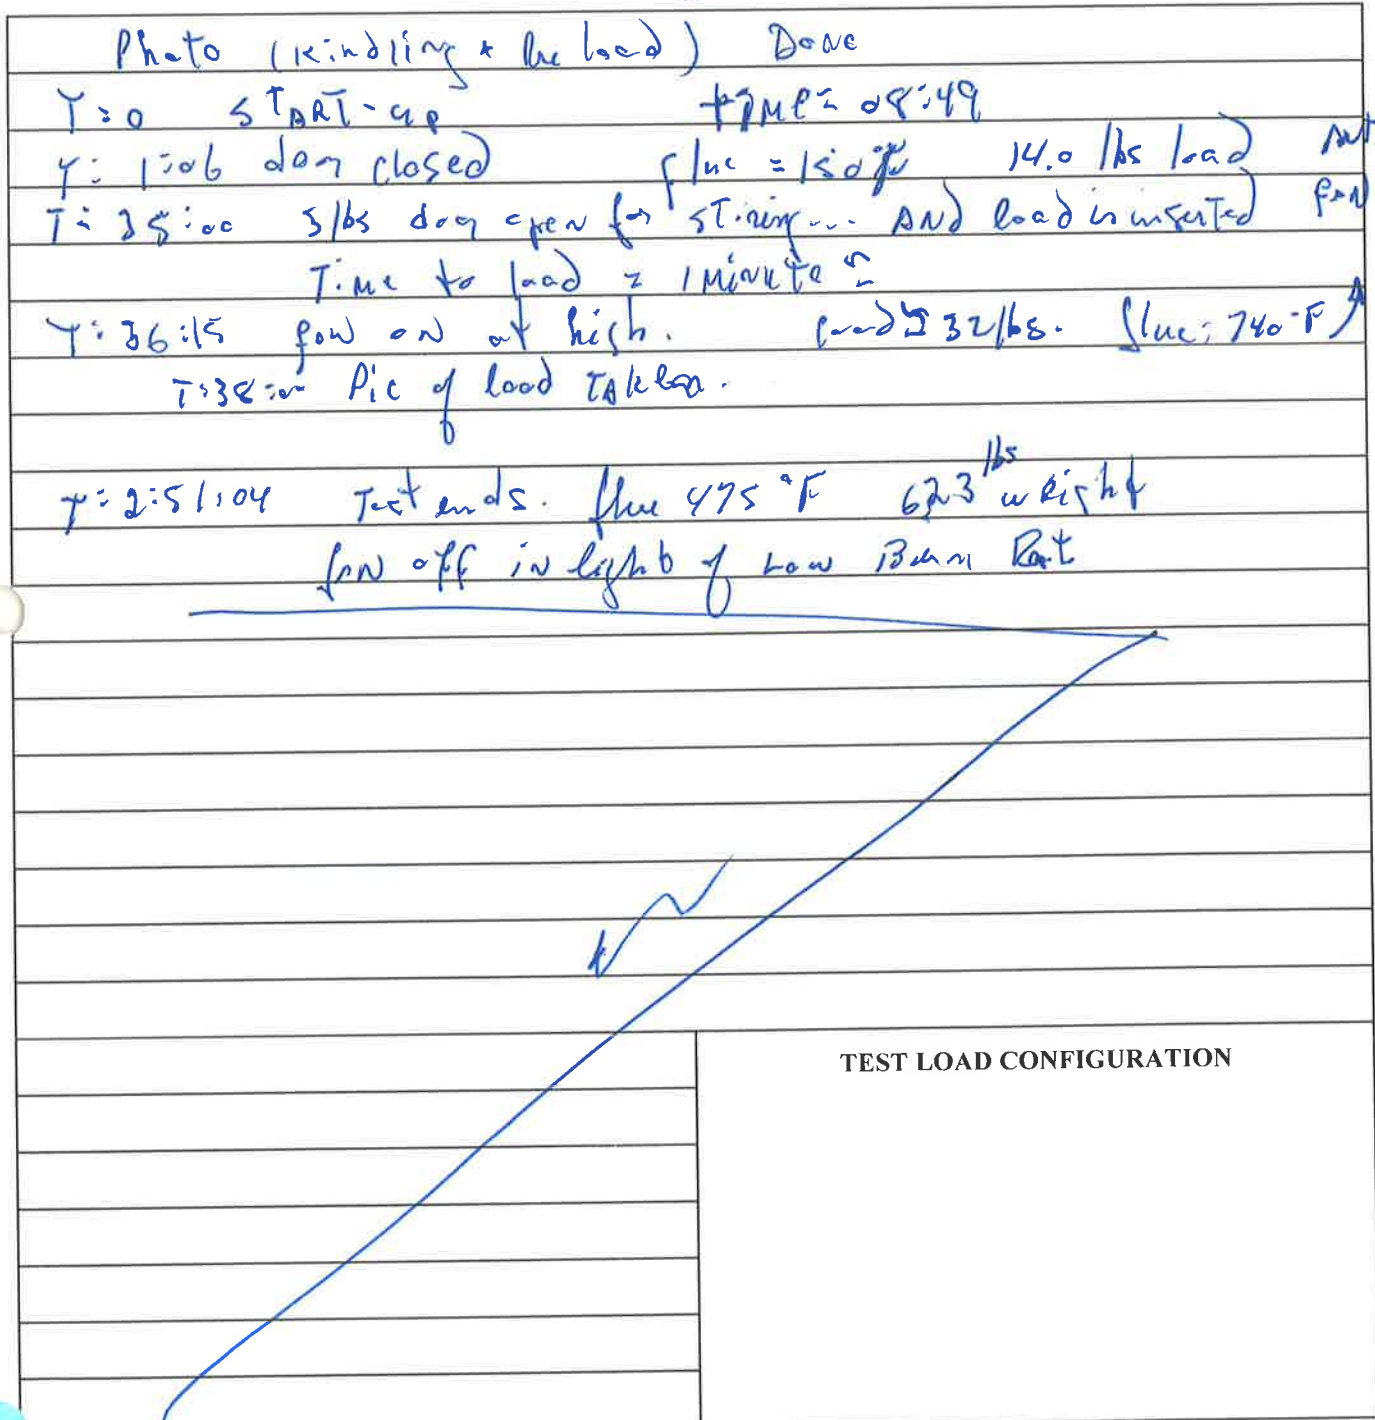 Photo (Kindling + Pre load) Done
T=0 START-up TIME= 08:49
T= 1:06 door closed flue = 150°F 14.0 lbs load
T= 35:00 5 lbs door open for stiring... AND load is inserted fan
Time to load = 1 Minute
T= 36:15 fan ON at high. load 32 lbs. flue: 740°F
T=38:00 Pic of load TAken.
T= 2:51:04 Test ends. flue 475 °F 6.23 lbs weight
fan off in light of Low Burn Rate
TEST LOAD CONFIGURATION